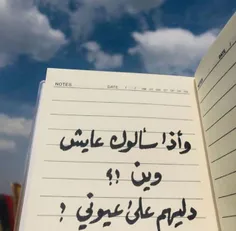 NOTES DATE
وأذا سألوك عايش
وين !؟
دليهم على عيوني ؟